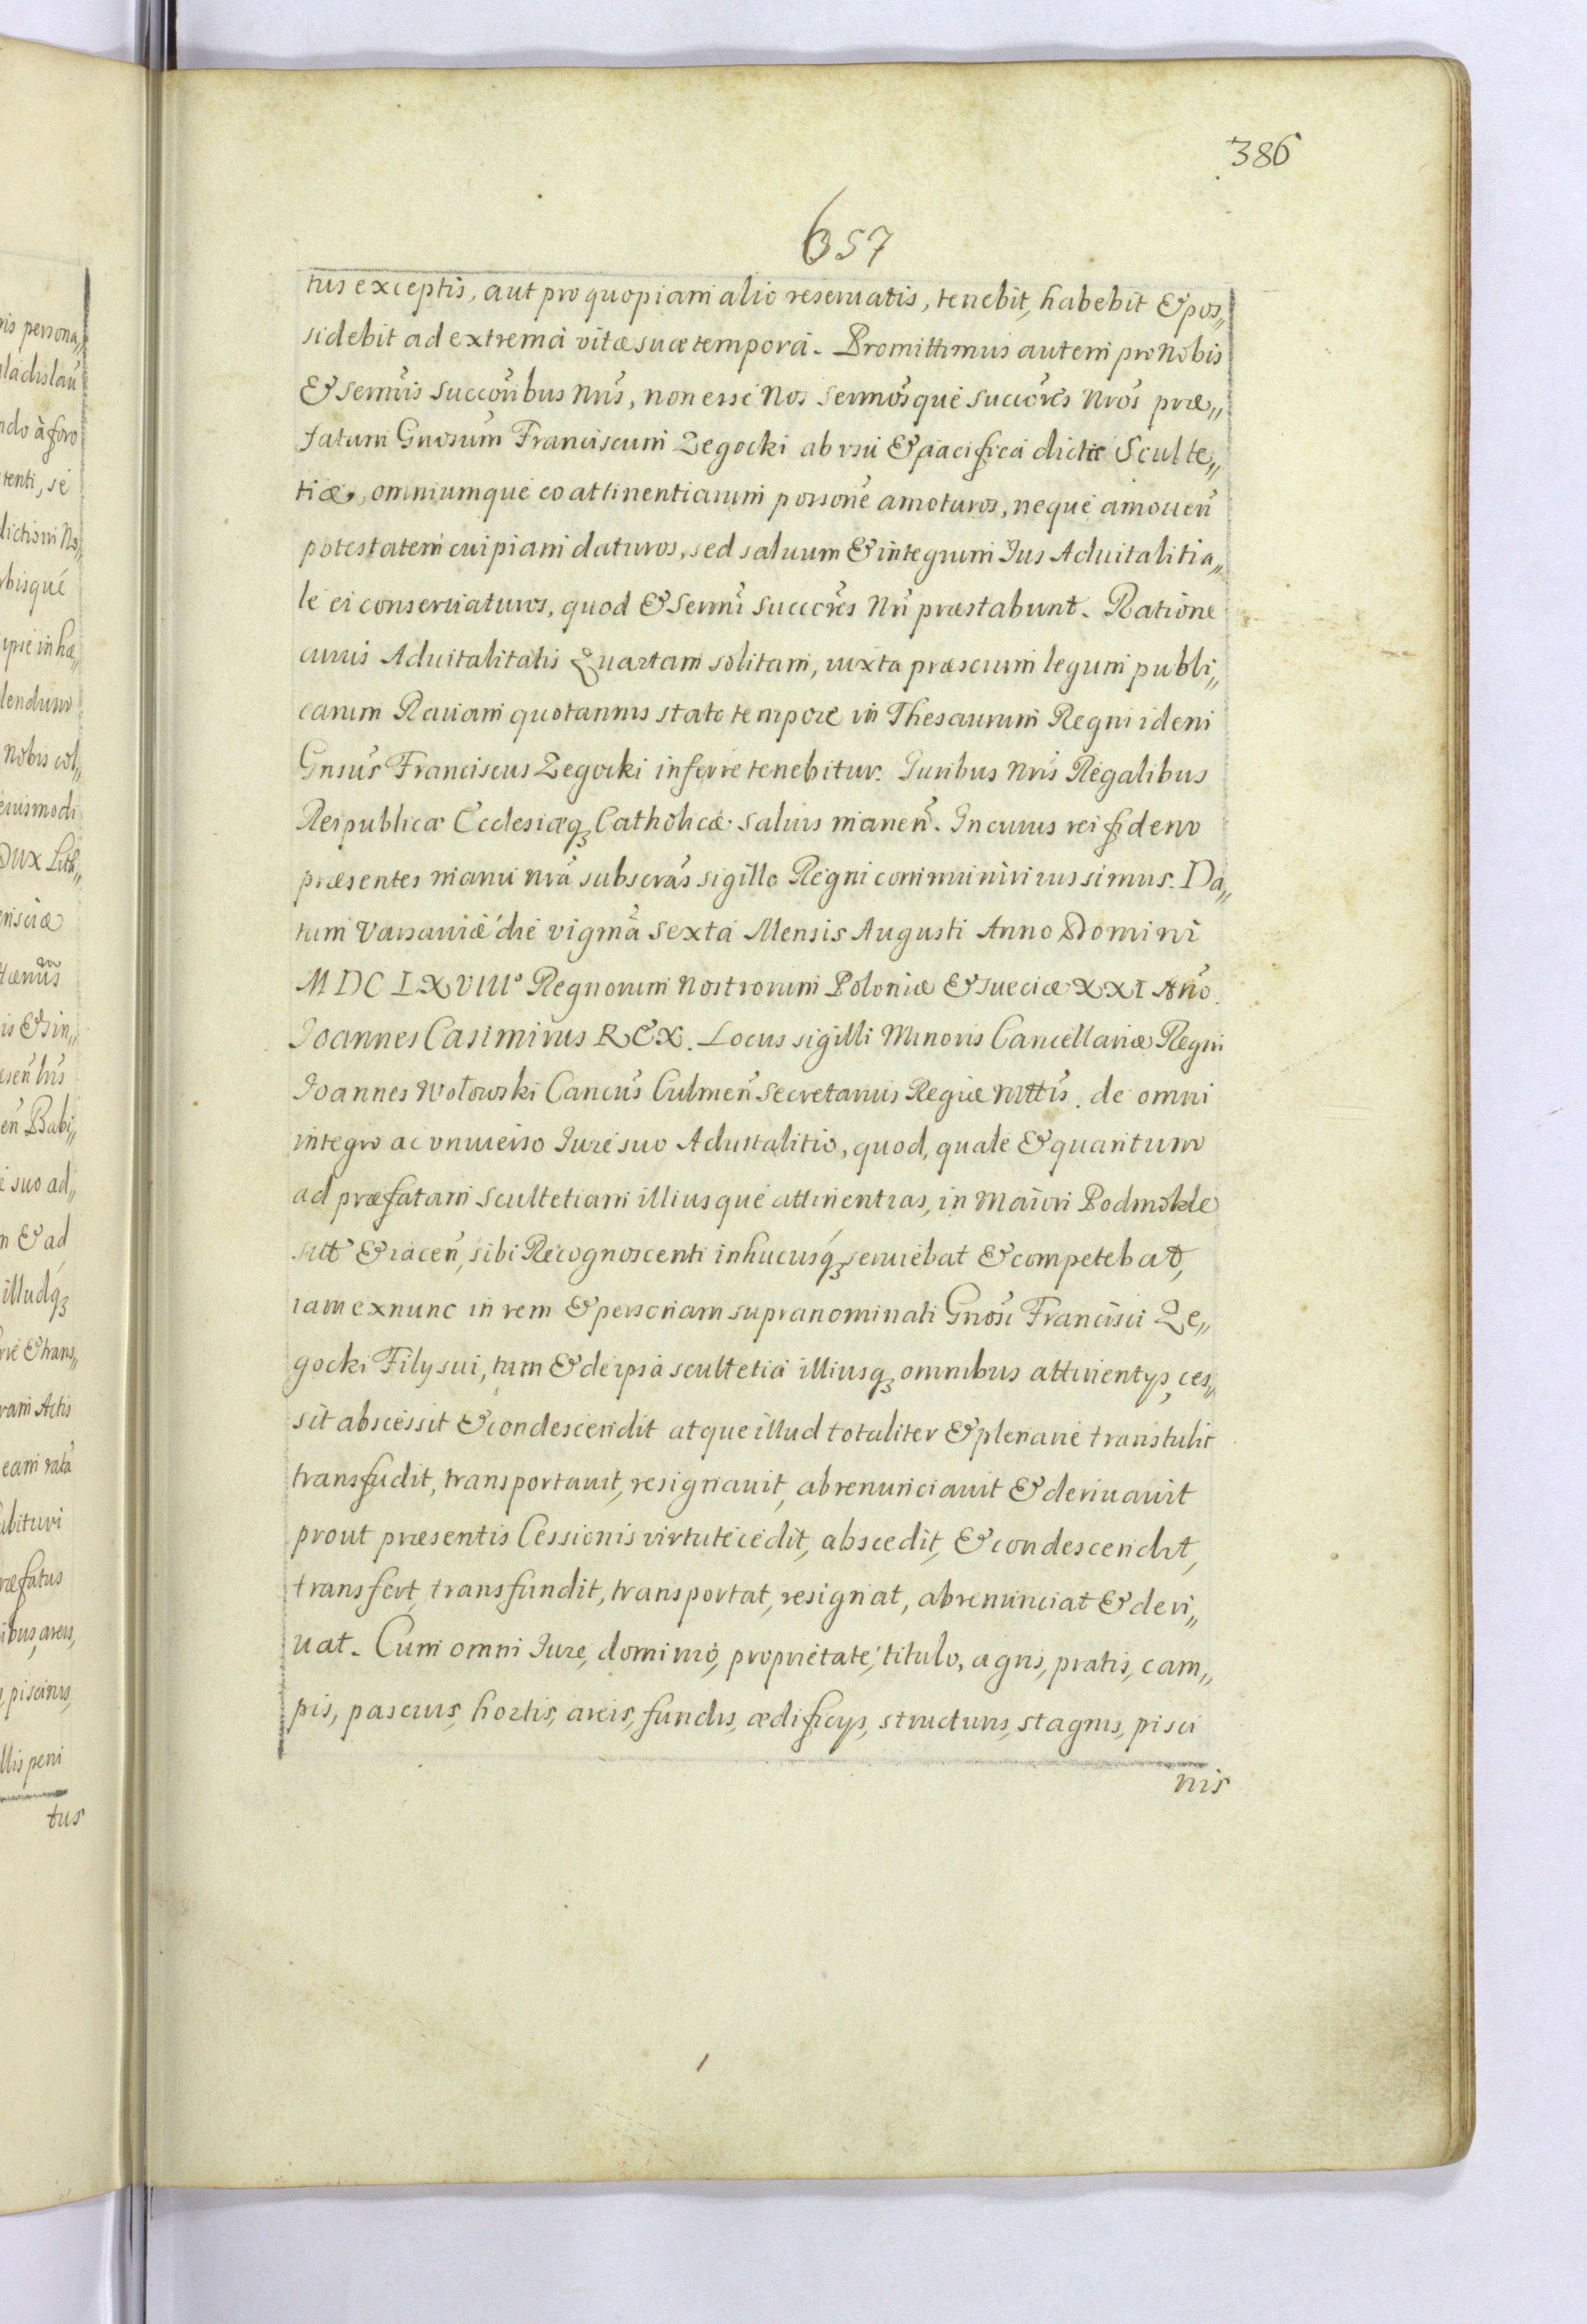 386
657
tus exceptis, aut pro quopiam alio reseruatis, tenebit, habebit & pos„
sidebit ad extrema vitæ suæ tempora. Promittimus autem pro Nobis
& Sermis Succoribus Nris, non esse Nos Sermosque Succores Nros præ„
fatum Gnosum Franciscum Zegocki ab vsu & pacifica dictæ Sculte„
tiæ, omniumque eo attinentiarum possone amoturos, neque amouen
potestatem cuipiam daturos, sed saluum & integrum Ius Aduitalitia„
le ei conseruaturos, quod & Sermi Succores Nri præstabunt. Ratione
cuius Aduitalitatis Quartam solitam, iuxta præscrum legum publi„
carum Rauam quotannis stato tempore in Thesaurum Regni idem
Gnsus Franciscus Zegocki inferre tenebitur. Iuribus Nris Regalibus
Reipublicæ Ecclesiæq₃ Catholicæ saluis manen. In cuius rei fidem
præsentes manu nra subscras sigillo Regni communiri iussimus. Da„
tum Varsauiæ die vigma sexta Mensis Augusti Anno Domini
MDCLXVIII° Regnorum Nostrorum Poloniæ & Sueciæ XXI Ano.
Ioannes Casimirus REX. Locus sigilli Minoris Cancellariæ Regni
Ioannes Wołowski Cancus Culmen Secretarius Regiæ Mttis. de omni
integro ac vniuerso Iure suo Aduitalitio, quod, quale & quantum
ad præfatam scultetiam illiusque attinentias, in Maiori Podmokle
sit & iacen, sibi Recognoscenti inhucusq₃ seruiebat & competebat,
iam exnunc in rem & personam supranominati Gnosi Francisci Ze„
gocki Filij sui, tum & de ipsa scultetia illiusq₃ omnibus attinentijs, ces„
sit abscessit & condescendit atque illud totaliter & plenarie transtulit
transfudit, transportauit, resignauit, abrenunciauit & deriuauit
prout præsentis Cessionis virtute cedit, abscedit, & condescendit,
transfert, transfundit, transportat, resignat, abrenunciat & deri„
uat. Cum omni Iure, dominio, proprietate, titulo, agris, pratis, cam„
pis, pascuis, hortis, areis, fundis, ædificijs, structuris, stagnis, pisci
nis